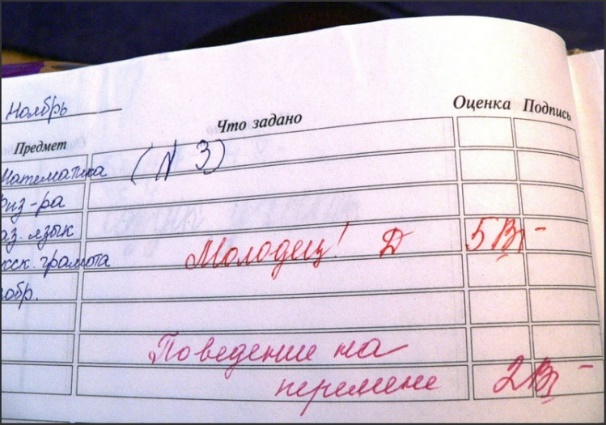 Ноябрь
Что задано
Оценка Подпись
Предмет
Математика (N 3)
физ-ра
каз. язык
русск. грамота
Молодец! Д 5
изобр.
Поведение на
перемене 2